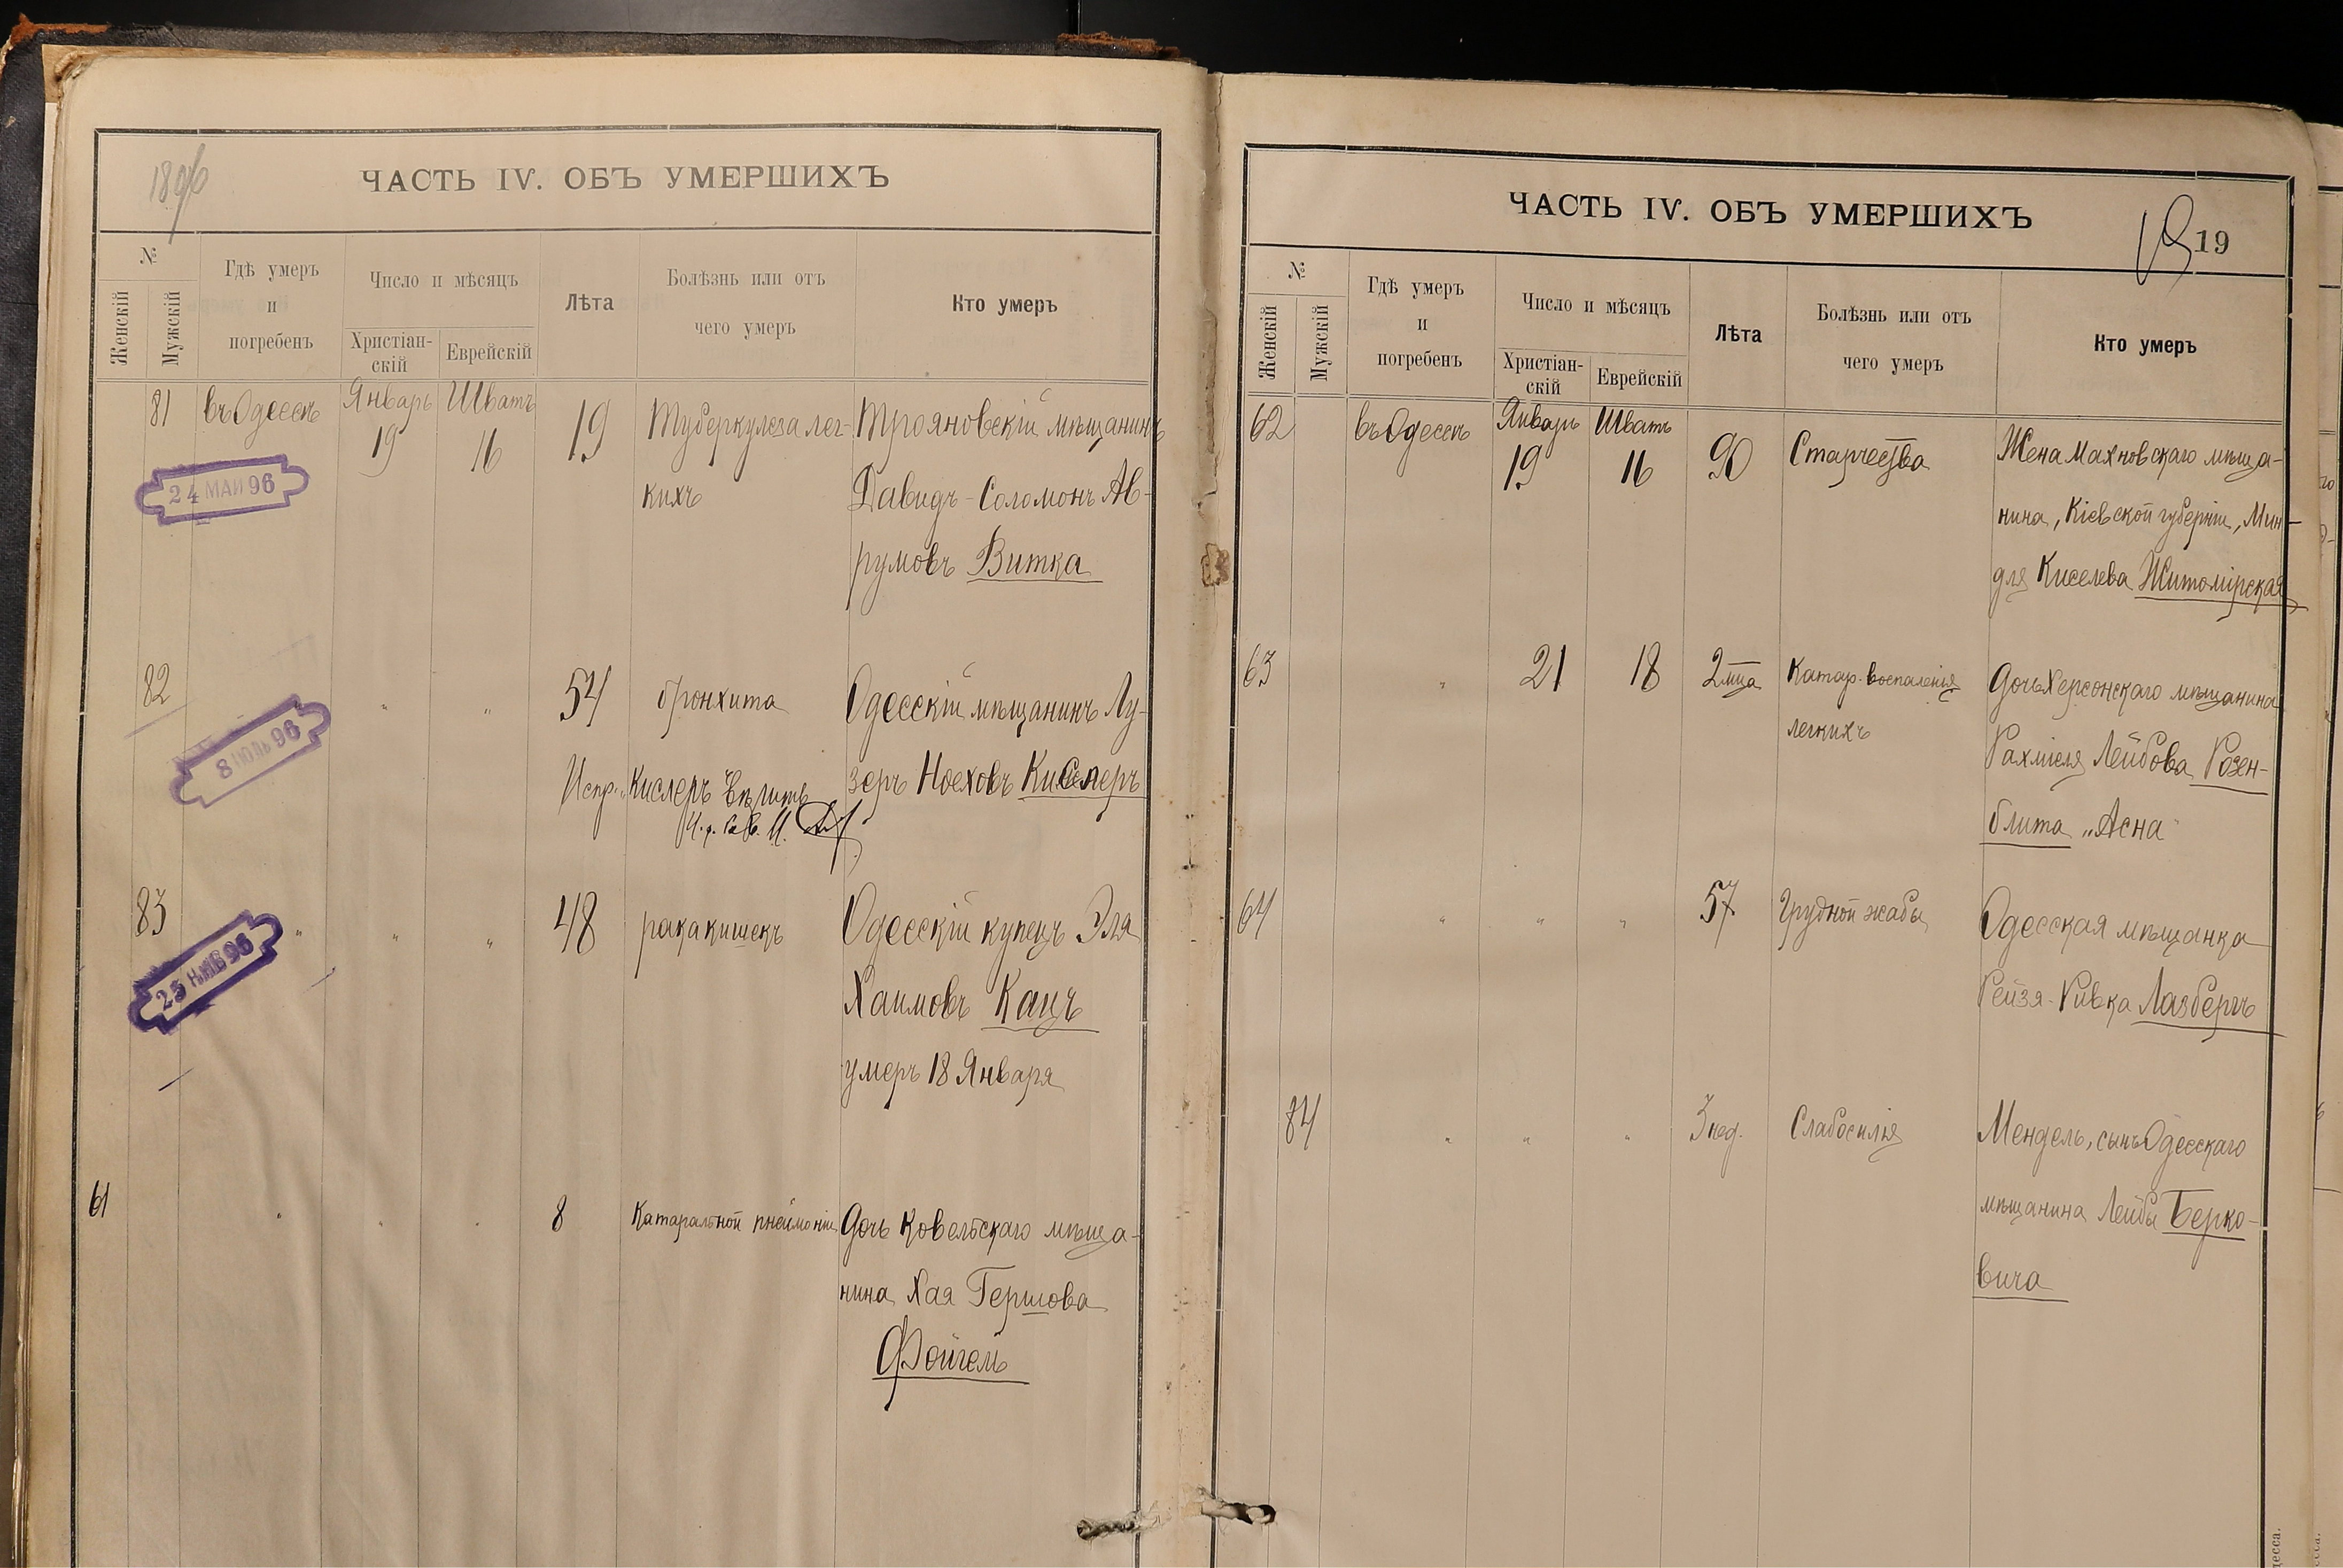 1896
ЧАСТЬ IV. ОБЪ УМЕРШИХЪ
№
Женскій
Мужскій
Гдѣ умеръ
и
погребенъ
Число и мѣсяцъ
Христіан-
скій
Еврейскій
Лѣта
Болѣзнь или отъ
чего умеръ
Кто умеръ
81 въ Одессѣ Январь 19 Шватъ 16 19 Туберкулеза лег-
кихъ
Трояновскій мѣщанинъ
Давидъ-Соломонъ Ав-
румовъ Витка
24 МАЙ 96
82 " " 54 бронхита
Одесскій мѣщанинъ Лу-
зеръ Ноеховъ Кислеръ
Испр. "Кислеръ" вѣрить
И. д. Рав. И.
8 ІЮЛЬ 96
83 " " " 48 рака кишекъ
Одесскій купецъ Эля
Хаимовъ Кацъ
умеръ 18 Января
25 96
61 " " " 8 Катаральной пнеймоніи
Дочь Ковельскаго мѣща-
нина Хая Гершова
Фойгель
ЧАСТЬ IV. ОБЪ УМЕРШИХЪ
19
19
№
Женскій
Мужскій
Гдѣ умеръ
и
погребенъ
Число и мѣсяцъ
Христіан-
скій
Еврейскій
Лѣта
Болѣзнь или отъ
чего умеръ
Кто умеръ
62 въ Одессѣ Январь 19 Шватъ 16 90 Старчества
Жена Махновскаго мѣща-
нина, Кіевской губерніи, Мин-
для Киселева Житомірская
63 " 21 18 2 мца Катар. воспаленія
легкихъ
Дочь Херсонскаго мѣщанина
Рахміеля Лейбова Розен-
блита "Асна"
64 " " " 57 Грудной жабы
Одесская мѣщанка
Рейзя-Ривка Лазбергъ
84 " " " 3 нед. Слабосилія
Мендель, сынъ Одесскаго
мѣщанина Лейбы Берко-
вича